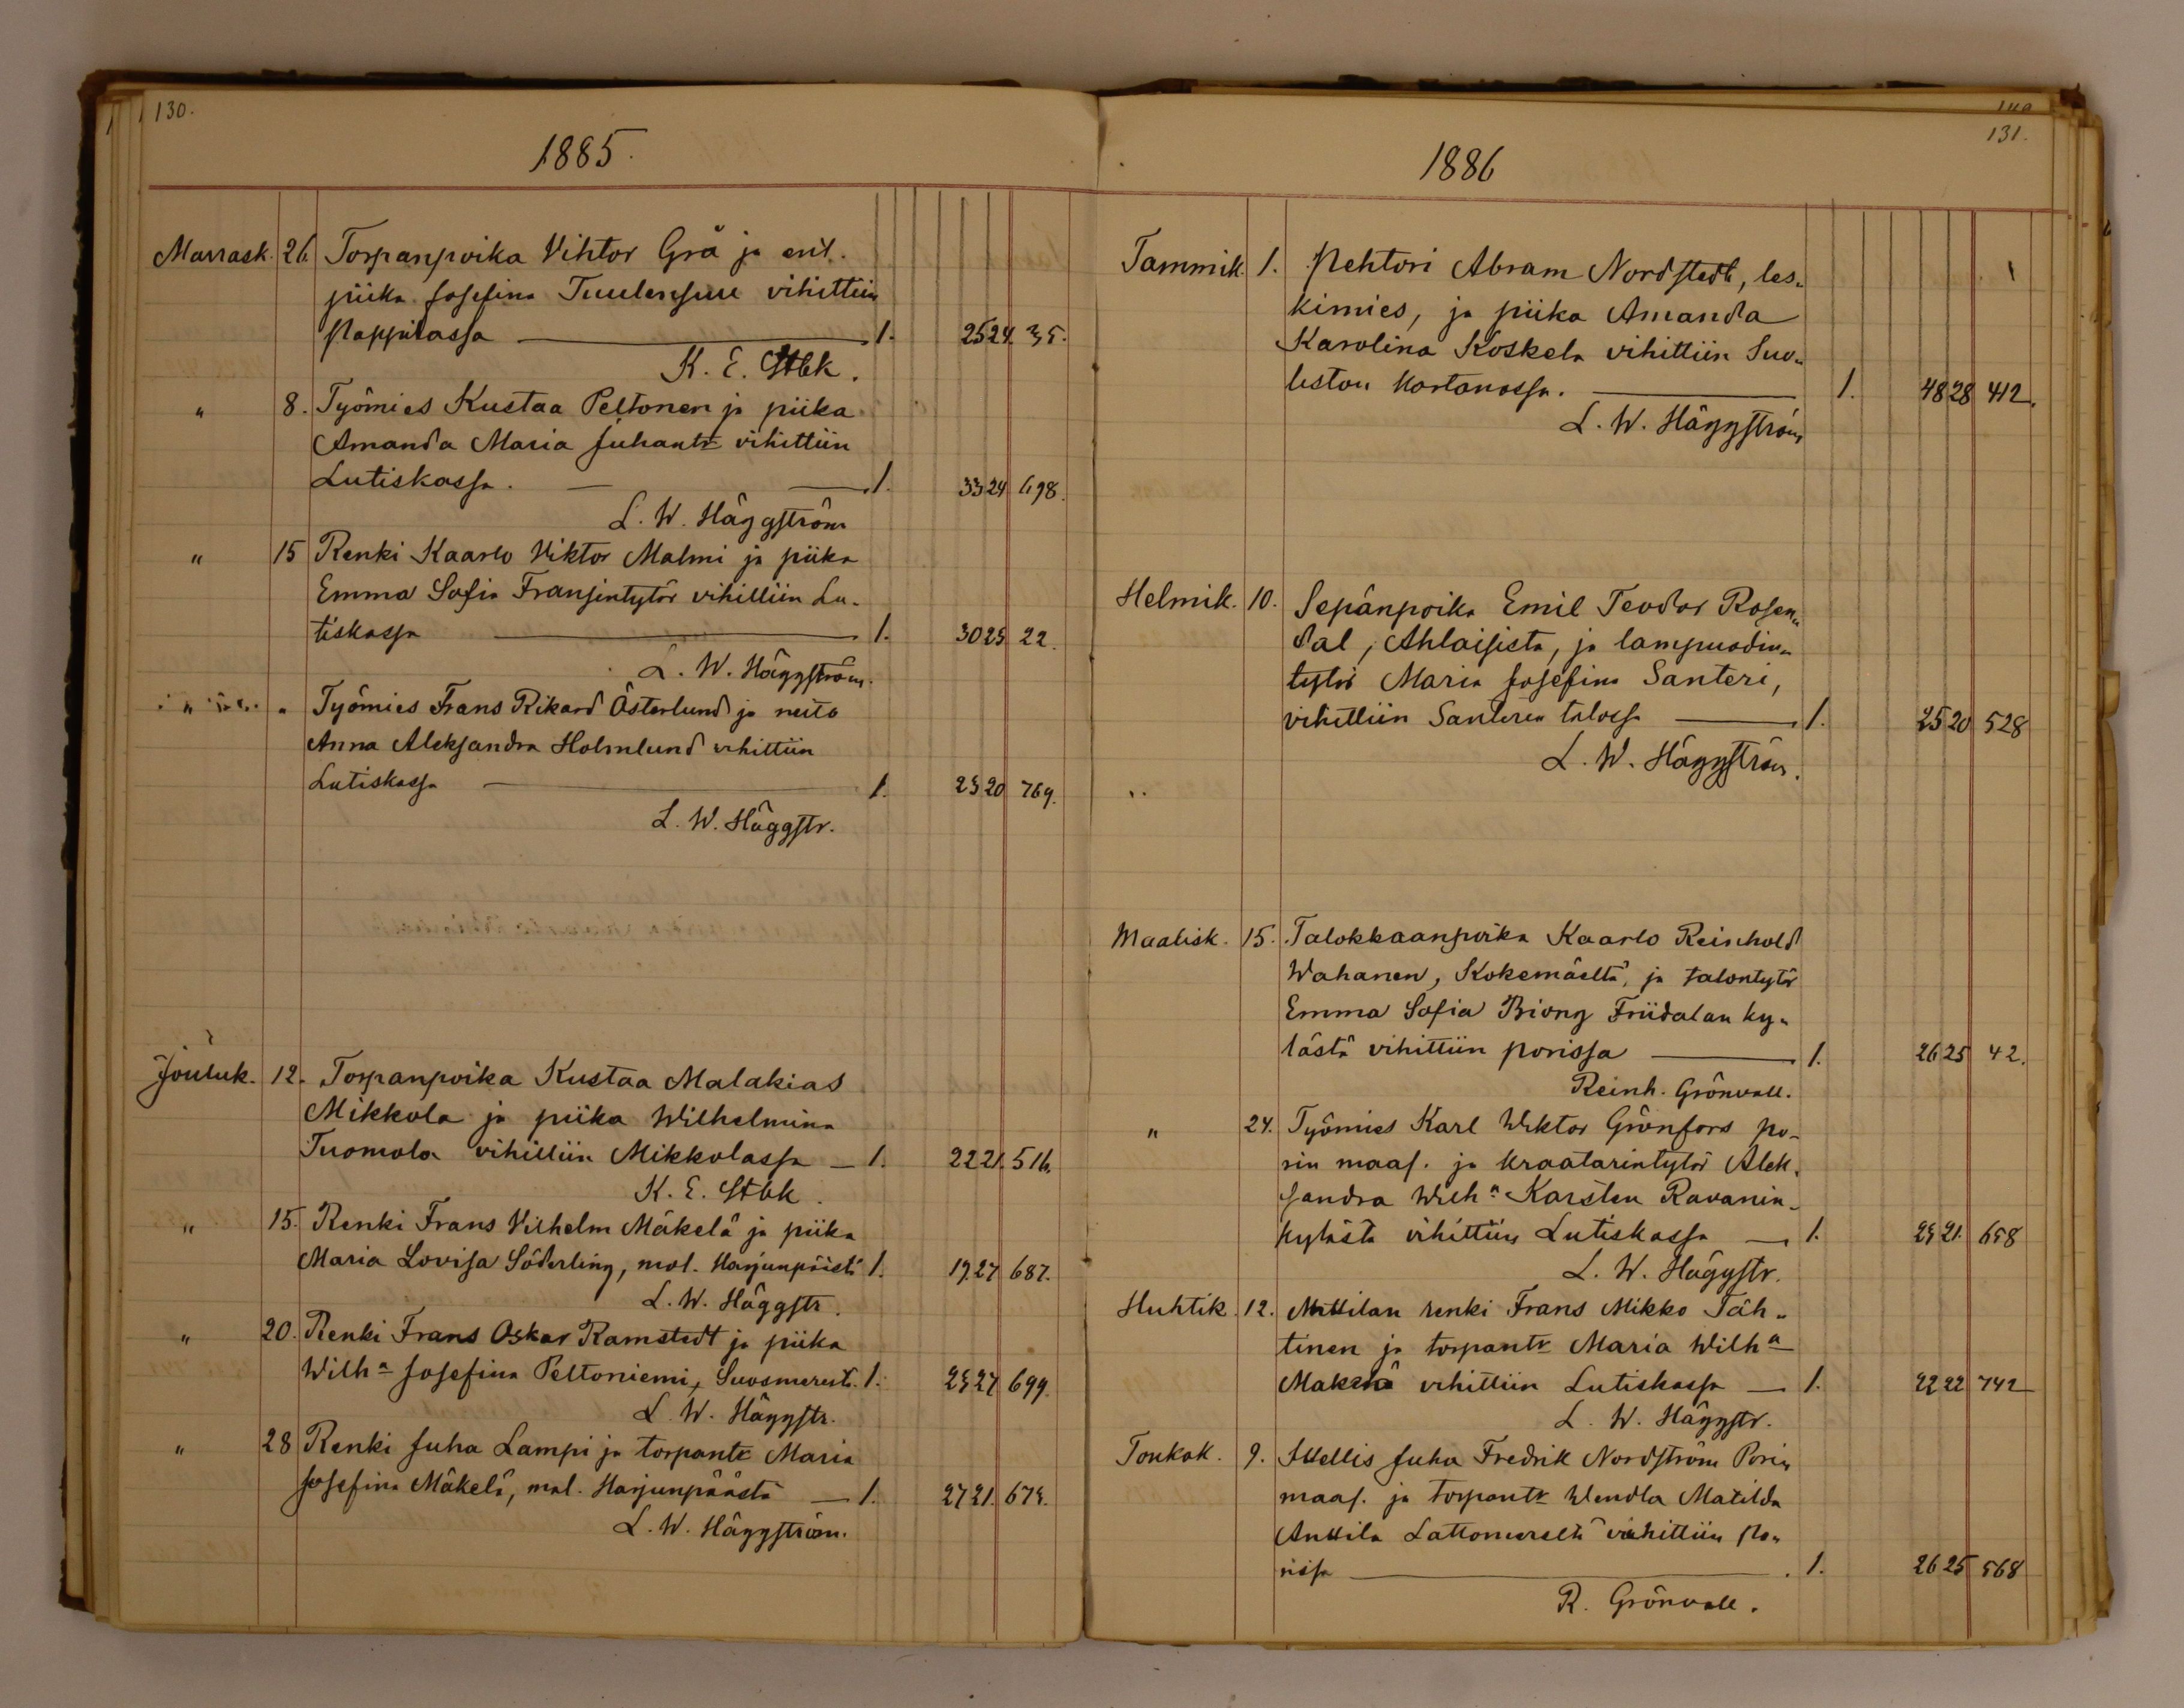 130.
1885.
Marrask. 26. Torpanpoika Vihtor Grå ja ent.
piika Josefina Tuulensuu vihittiin
Pappilassa 1. 25 24. 35.
K. E. Stbk.
" 8. Työmies Kustaa Peltonen ja piika
Amanda Maria Juhantr vihittiin
Lutiskassa. 1. 33 24 698.
L. W. Häggström
" 15 Renki Kaarlo Viktor Malmi ja piika
Emma Sofia Fransintytär vihittiin Lu-
tiskassa 1. 30 25 22.
L. W. Häggström.
" " Työmies Frans Rikard Österlund ja neito
Anna Aleksandra Holmlund vihittiin
Lutiskassa 1. 23 20 769.
L. W. Häggstr.
Jouluk. 12. Torpanpoika Kustaa Malakias
Mikkola ja piika Wilhelmina
Tuomola vihittiin Mikkolassa 1. 22 21. 516.
K. E. Stbk.
" 15. Renki Frans Vilhelm Mäkelä ja piika
Maria Lovisa Söderling, mol. Harjunpäästä 1. 19. 27 687.
L. W. Häggstr.
" 20. Renki Frans Oskar Ramstedt ja piika
Wilh:a Josefina Peltoniemi, Suosmerest. 1. 23 27 699.
L. W. Häggstr.
" 28 Renki Juha Lampi ja torpantr Maria
Josefina Mäkelä, mol. Harjunpäästä 1. 27 21. 673.
L. W. Häggström.
131.
1886
Tammik. 1. Pehtori Abram Nordstedt, les-
kimies, ja piika Amanda
Karolina Koskela vihittiin Suo-
liston Kartanossa. 1. 48 28 412.
L. W. Häggström
Helmik. 10. Sepänpoika Emil Teodor Rosen-
dal, Ahlaisista, ja lampuodin-
tytär Maria Josefina Santeri,
vihittiin Santerin talossa 1. 25 20 528
L. W. Häggström.
Maalisk. 15. Talokkaanpoika Kaarlo Reinhold
Wahanen, Kokemäeltä, ja talontytär
Emma Sofia Biong Friidalan ky-
lästä vihittiin Porissa 1. 26 25 42.
Reinh. Grönvall.
" 24. Työmies Karl Wiktor Grönfors Po-
rin maas. ja kraatarintytär Alek-
sandra Wilh:a Karsten Ravanin-
kylästä vihittiin Lutiskassa 1. 23 21. 658
L. W. Häggstr.
Huhtik. 12. Anttilan renki Frans Mikko Täh-
tinen ja torpantr Maria Wilh:a
Mäkelä vihittiin Lutiskassa 1. 22 22 742
L. W. Häggstr.
Toukok. 9. Itsellis Juha Fredrik Nordström Porin
maas. ja torpantr Wendla Matilda
Anttila Lattomerelta vihittiin Po-
rissa 1. 26 25 568
R. Grönvall.